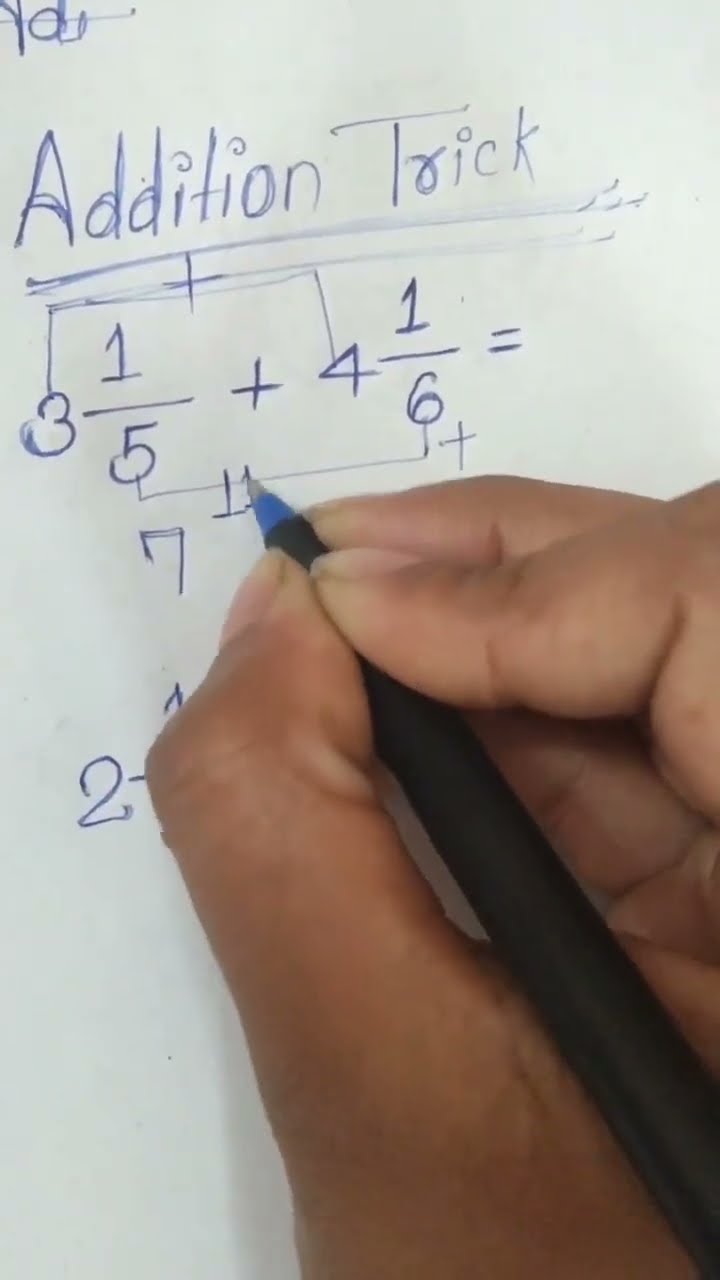 Addition Trick
+
3 1/5 + 4 1/6 =
+
11
7
2